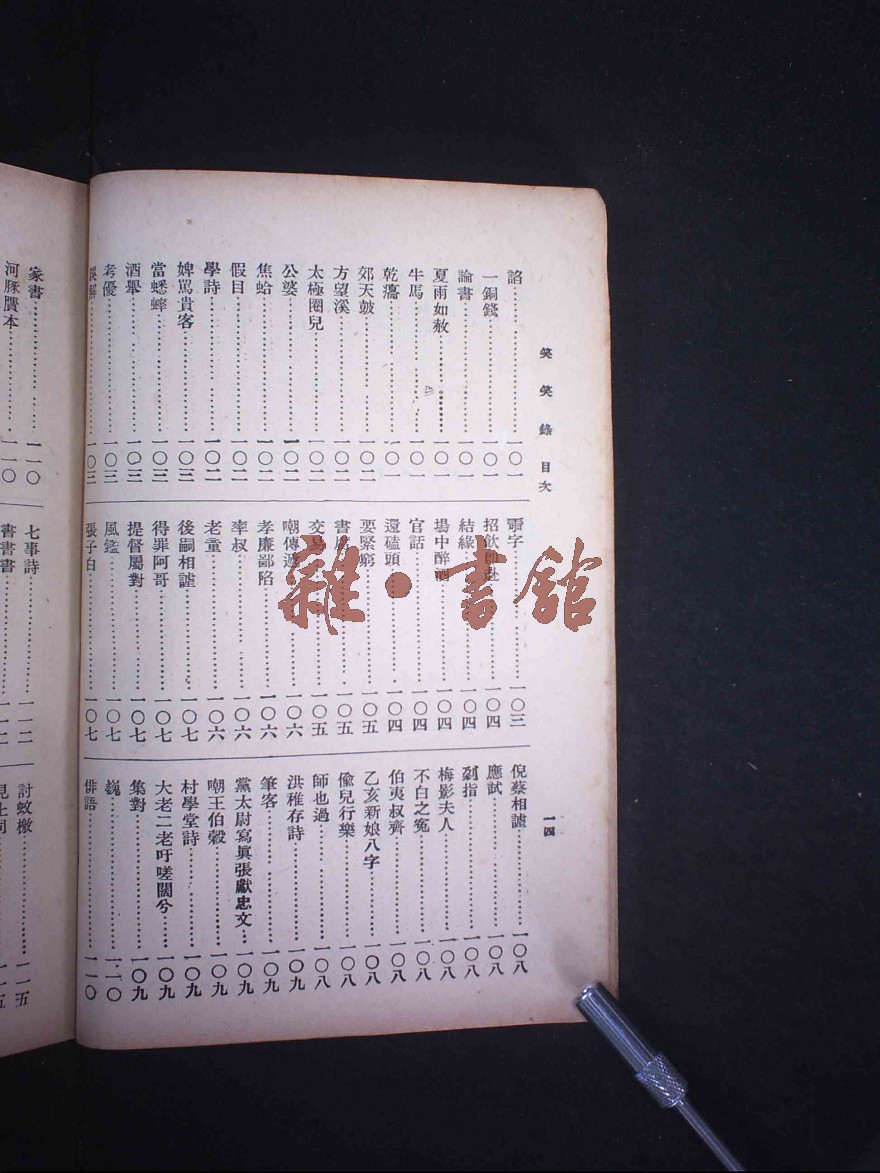 笑笑錄 目次
一四
諂……一〇一
一銅錢……一〇一
論書……一〇一
夏雨如赦……一〇一
牛馬……一〇一
乾癟……一〇一
郊天皷……一〇二
方望溪……一〇二
太極圈兒……一〇二
公婆……一〇二
焦蛤……一〇二
假目……一〇二
學詩……一〇二
婢罵貴客……一〇三
當蟋蟀……一〇三
酒舉……一〇三
考優……一〇三
……一〇三
字……一〇三
招飲卽赴……一〇四
結緣……一〇四
場中醉酒……一〇四
官話……一〇四
還磕頭……一〇四
要緊窮……一〇五
書……一〇五
交易……一〇五
嘲傳遞……一〇六
孝廉鄙陷……一〇六
率叔……一〇六
老童……一〇六
後嗣相謔……一〇七
得罪阿哥……一〇七
提督屬對……一〇七
風鑑……一〇七
張子白……一〇七
倪蔡相謔……一〇八
應試……一〇八
剁指……一〇八
梅影夫人……一〇八
不白之冤……一〇八
伯夷叔齊……一〇八
乙亥新娘八字……一〇八
偸兒行樂……一〇八
師也過……一〇八
洪稚存詩……一〇九
筆客……一〇九
黨太尉寫眞張獻忠文……一〇九
嘲王伯穀……一〇九
村學堂詩……一〇九
大老二老吁嗟闊兮……一〇九
集對……一〇九
巍……一一〇
俳語……一一〇
家書……一一〇
河豚贋本……一一〇
七事詩……一一二
書書書……一一二
討蚊檄……一一五
雜·書館